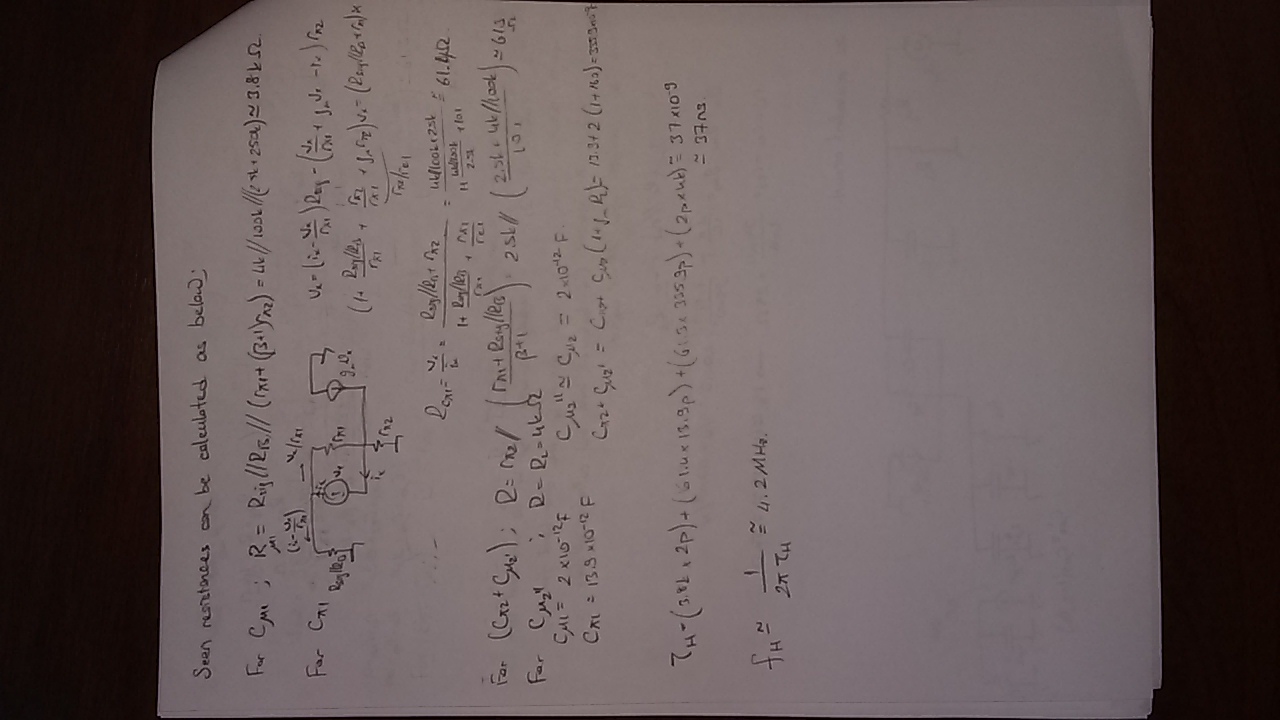 Seen resistances can be calculated as below:
For Cμ1 ; Rμ1 = Rsig//RB//(rπ1+(β+1)rπ2) = 4k//100k//(25k+250k) ≃ 3.8kΩ.
For Cπ1
(ix - Vx/rπ1)
Vx/rπ1
Rsig//RB
Vx
rπ1
gmVx
ix
rπ2
Vx = (ix - Vx/rπ1)Rsig - (Vx/rπ1 + gmVx - ix)rπ2
(1 + Rsig//RB/rπ1 + rπ2/rπ1 + gm rπ2)Vx = (Rsig//RB+rπ2)ix
rπ2/re1
Rcπ1 = Vx/ix = Rsig//RB+rπ2 / 1 + Rsig//RB/rπ1 + rπ2/re1 = 4k//100k+25k / 1+ 4k//100k/25k +101 ≃ 61.4Ω
For (Cπ2+Cμ2') ; R = rπ2//(rπ1+Rsig//RB / β+1) = 25k//(25k+4k//100k / 101) ≃ 61.3Ω
For Cμ2'' ; R = RL = 4kΩ
Cμ1 = 2x10⁻¹²F Cμ2'' ≃ Cμ2 = 2x10⁻¹² F.
Cπ1 = 13.9x10⁻¹² F Cπ2+Cμ2' = Cπ2+ Cμ2(1+gmRL) = 13.9+2(1+160) = 335.9x10⁻¹²F
τH = (3.8k x 2p) + (61.4 x 13.9p) + (61.3x 335.9p) + (2p x 4k) ≅ 37x10⁻⁹
≃ 37ns.
fH ≃ 1/2πτH ≅ 4.2MHz.